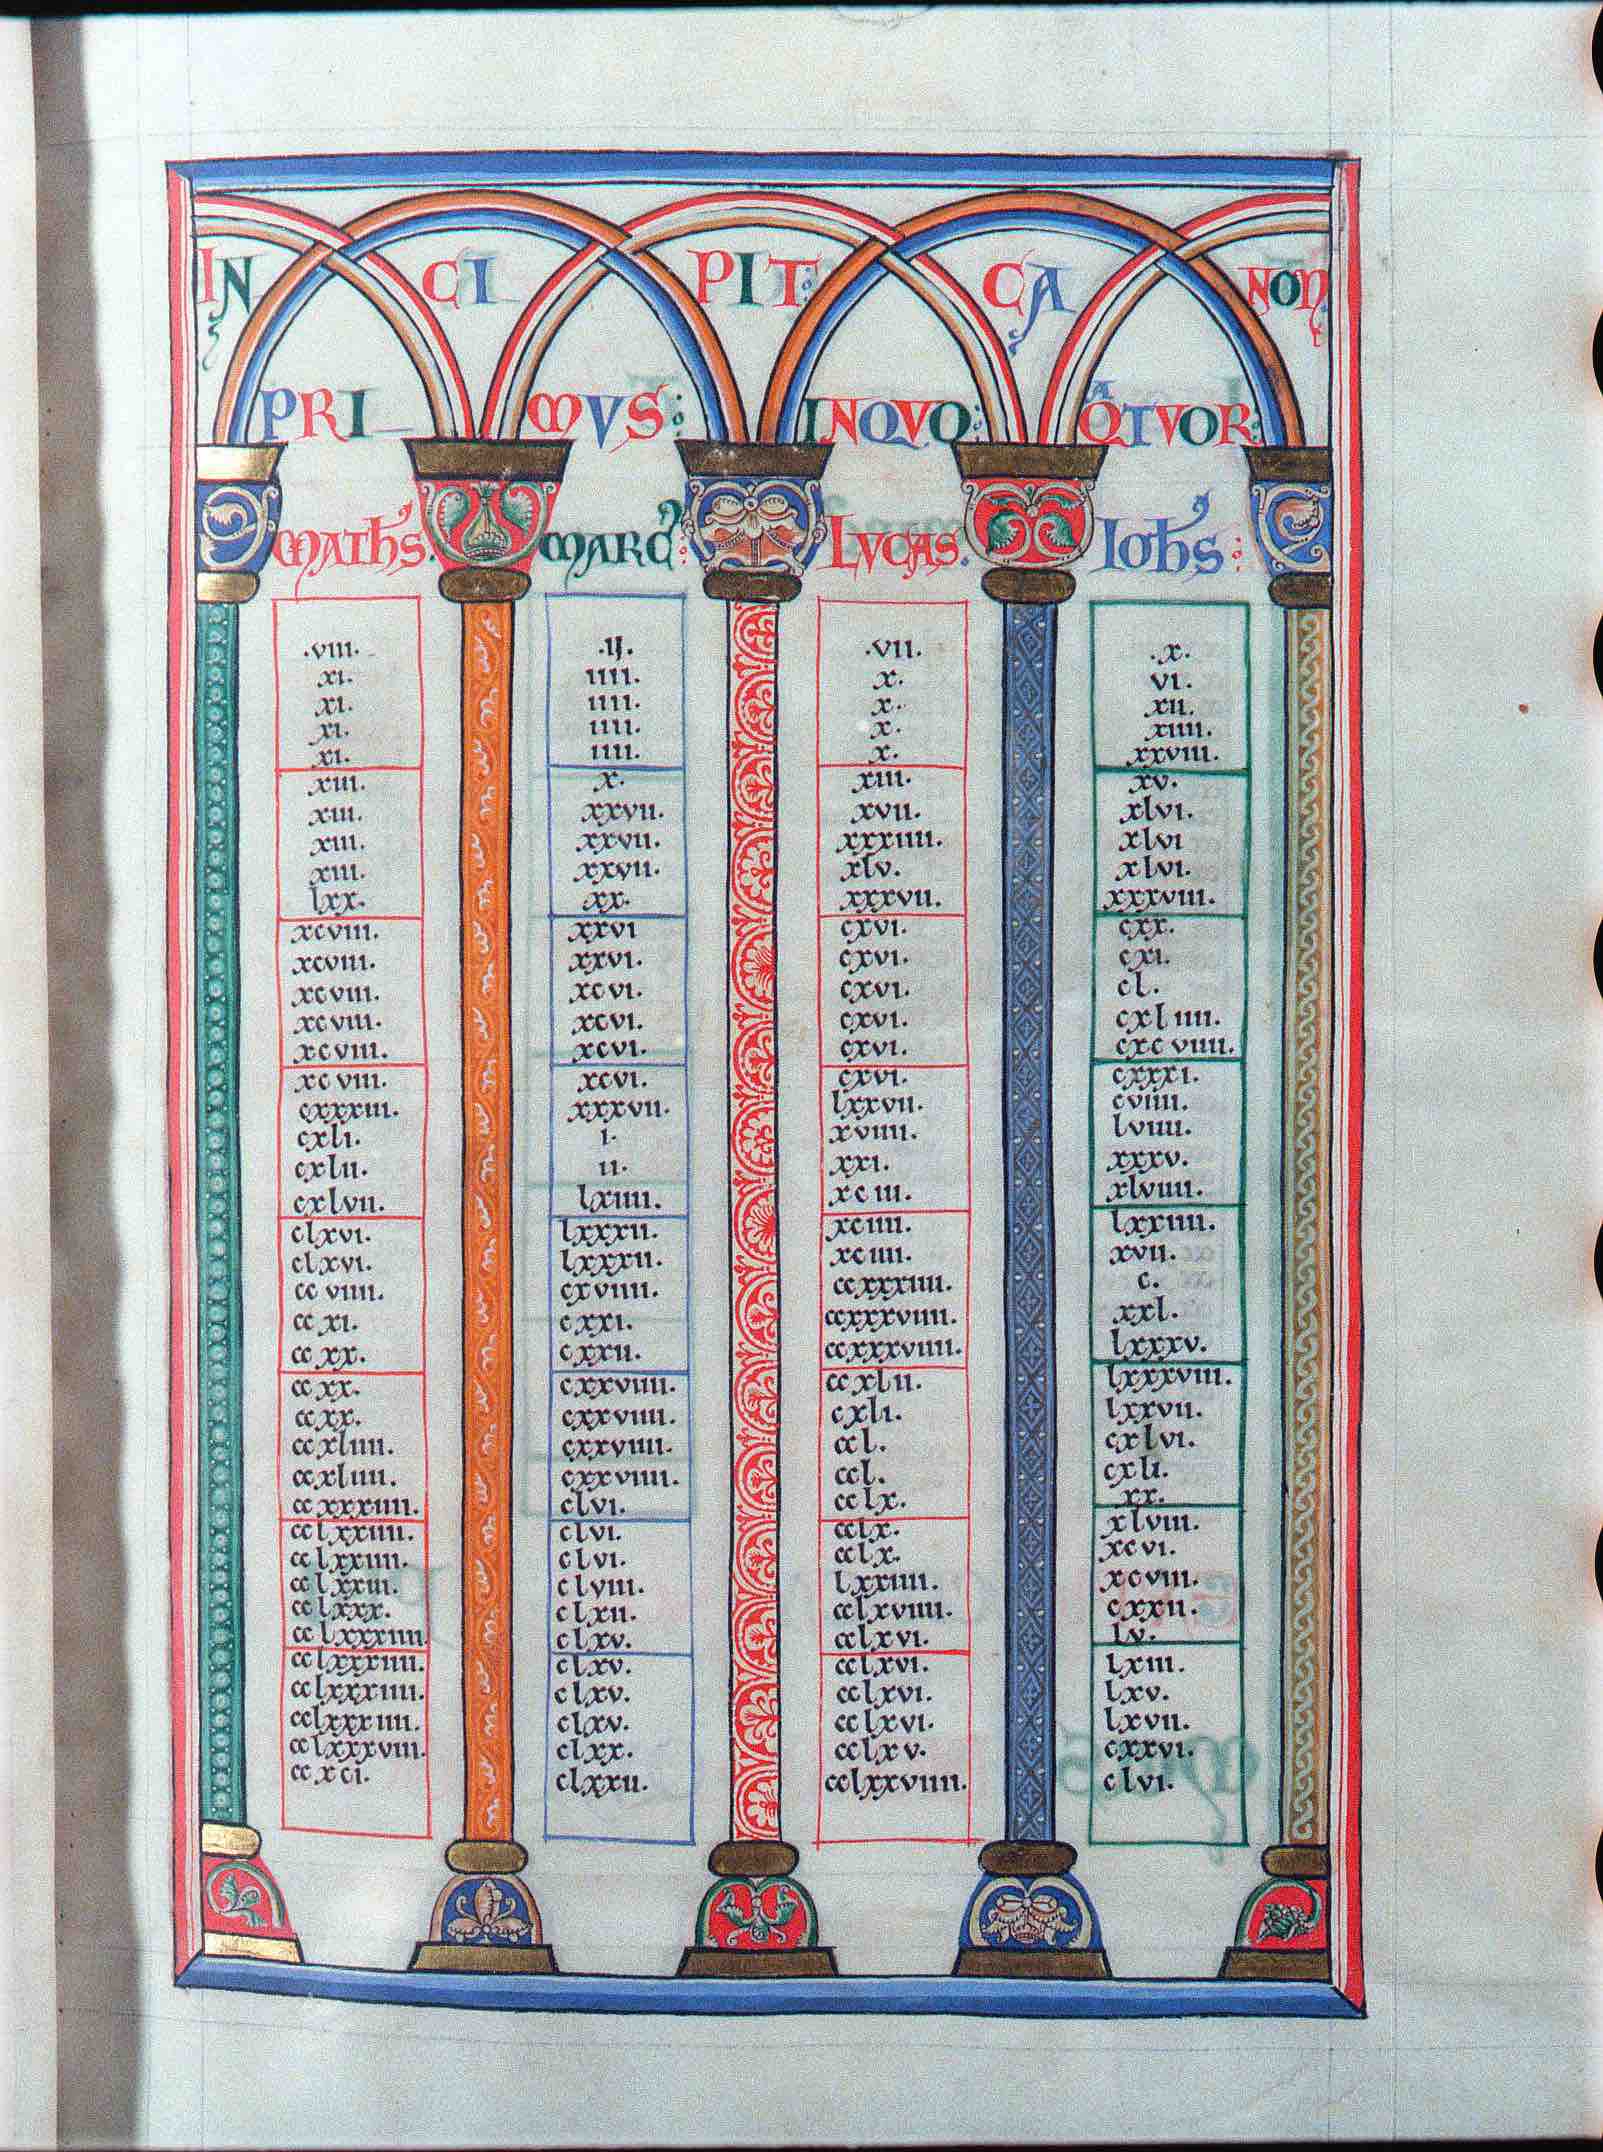 IN CI PIT: CA NON
PRI MVS: INQVO: QATVOR:
MATHS: MARC: LVCAS: IOHS:
.viii. .ij. .vii. .x.
xi. iiii. x. vi.
xi. iiii. x. xii.
xi. iiii. x. xiiii.
xi. iiii. x. xxviii.
xiii. x. xiii. xv.
xiii. xxvii. xvii. xlvi.
xiii. xxvii. xxxiiii. xlvi
xiii. xxvii. xlv. xlvi.
lxx. xx. xxxvii. xxxviii.
xcviii. xxvi cxvi. cxx.
xcviii. xxvi. cxvi. cxi.
xcviii. xcvi. cxvi. cl.
xcviii. xcvi. cxvi. cxliiii.
xcviii. xcvi. cxvi. cxcviiii.
xcviii. xcvi. cxvi. cxxxi.
cxxxiii. xxxvii. lxxvii. cviiii.
cxli. i. xviiii. lviiii.
cxlii. ii. xxi. xxxv.
cxlvii. lxiiii. xciii. xlviiii.
clxvi. lxxxii. xciiii. lxxiiii.
clxvi. lxxxii. xciiii. xvii.
ccviiii. cxviiii. ccxxxiiii. c.
ccxi. cxxi. ccxxxviiii. xxl.
ccxx. cxxii. ccxxxviiii. lxxxv.
ccxx. cxxviiii. ccxlii. lxxxviii.
ccxx. cxxviiii. cxli. lxxvii.
ccxliiii. cxxviiii. ccl. cxlvi.
ccxliiii. cxxviiii. ccl. cxli.
ccxxxiiii. clvi. cclx. xx.
cclxxiiii. clvi. cclx. xlviii.
cclxxiiii. clvi. cclx. xcvi.
cclxxiii. clviii. lxxiiii. xcviii.
cclxxx. clxii. cclxviiii. cxxii.
cclxxxiiii clxv. cclxvi. lv.
cclxxxiiii. clxv. cclxvi. lxiii.
cclxxxiiii. clxv. cclxvi. lxv.
cclxxxiiii. clxv. cclxvi. lxvii.
cclxxxviii. clxx. cclxv. cxxvi.
ccxci. clxxii. cclxxviiii. clvi.